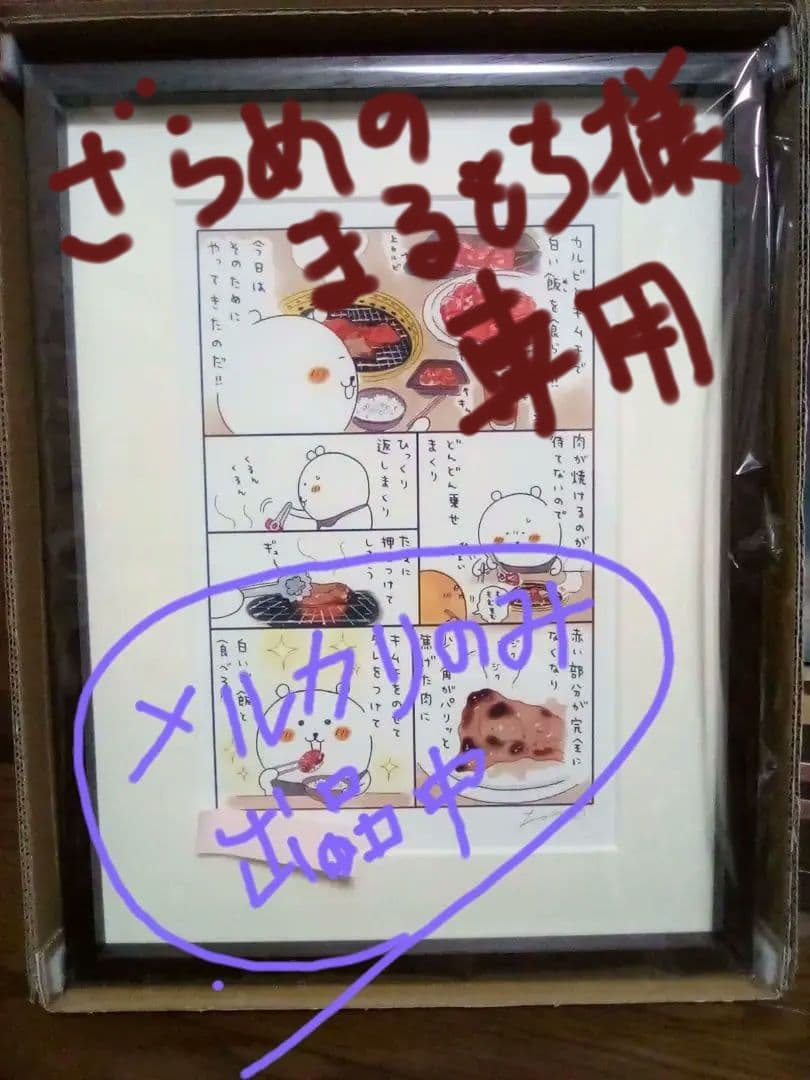 ざらめの
まるもち様
専用
カルビとキムチで
白い飯を食らう!!
上カルビ
今日は
そのために
やってきたのだ!!
肉が焼けるのが
待てないので
どんどん乗せ
まくり
ひっくり
返しまくり
くるん
くるん
たまに
押しつけて
しまう
ギュー
赤い部分が完全に
なくなり
小 角がパリッと
焦げた肉に
ジワ
ジワ
キムチをのせて
タレをつけて
白い飯と
食べる
メルカリのみ
出品中